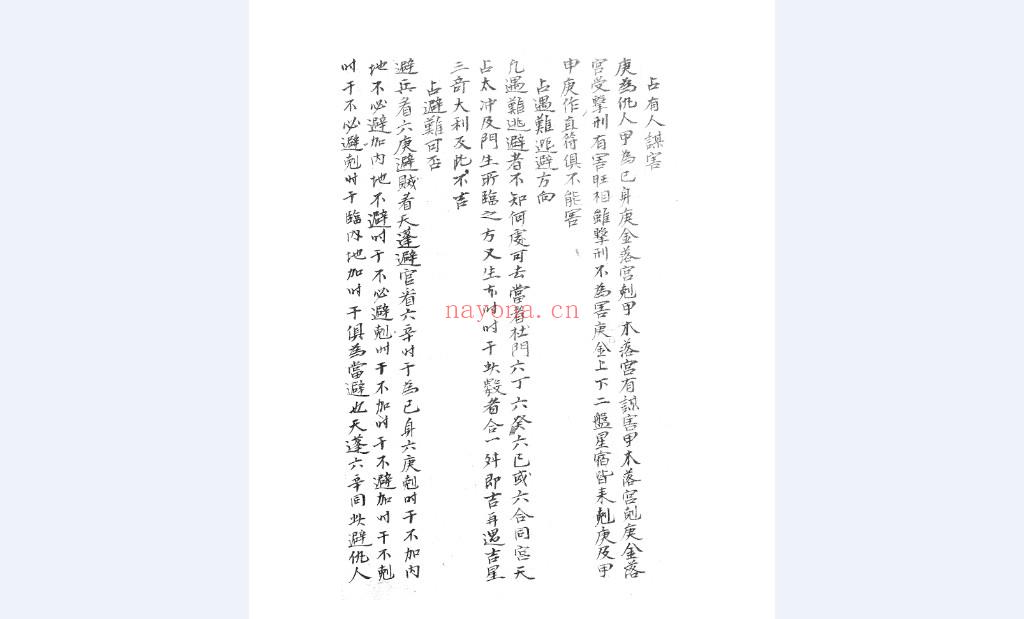 占有人謀害
庚為仇人甲為己身庚金落宮剋甲木落宮有謀害甲木落宮剋庚金落
宮受擊刑有害旺相雖擊刑不為害庚金上下二盤星宿皆來剋庚及甲
申庚作直符俱不能害
占遇難逃避方向
凡遇難逃避者不知何處可去當看杜門六丁六癸六己或六合同宮天
占太冲及門生所臨之方又生本时时干此數者合一舛即吉再遇吉星
三奇大利反此不吉
占避難可否
避兵看六庚避賊者天蓬避官看六辛时干為己身六庚剋时干不加内
地不必避加内地不避时干不必避剋时干不加时干不避加时干不剋
时干不必避剋时干臨内地加时干俱為當避也天蓬六辛同此避仇人
nayona.cn